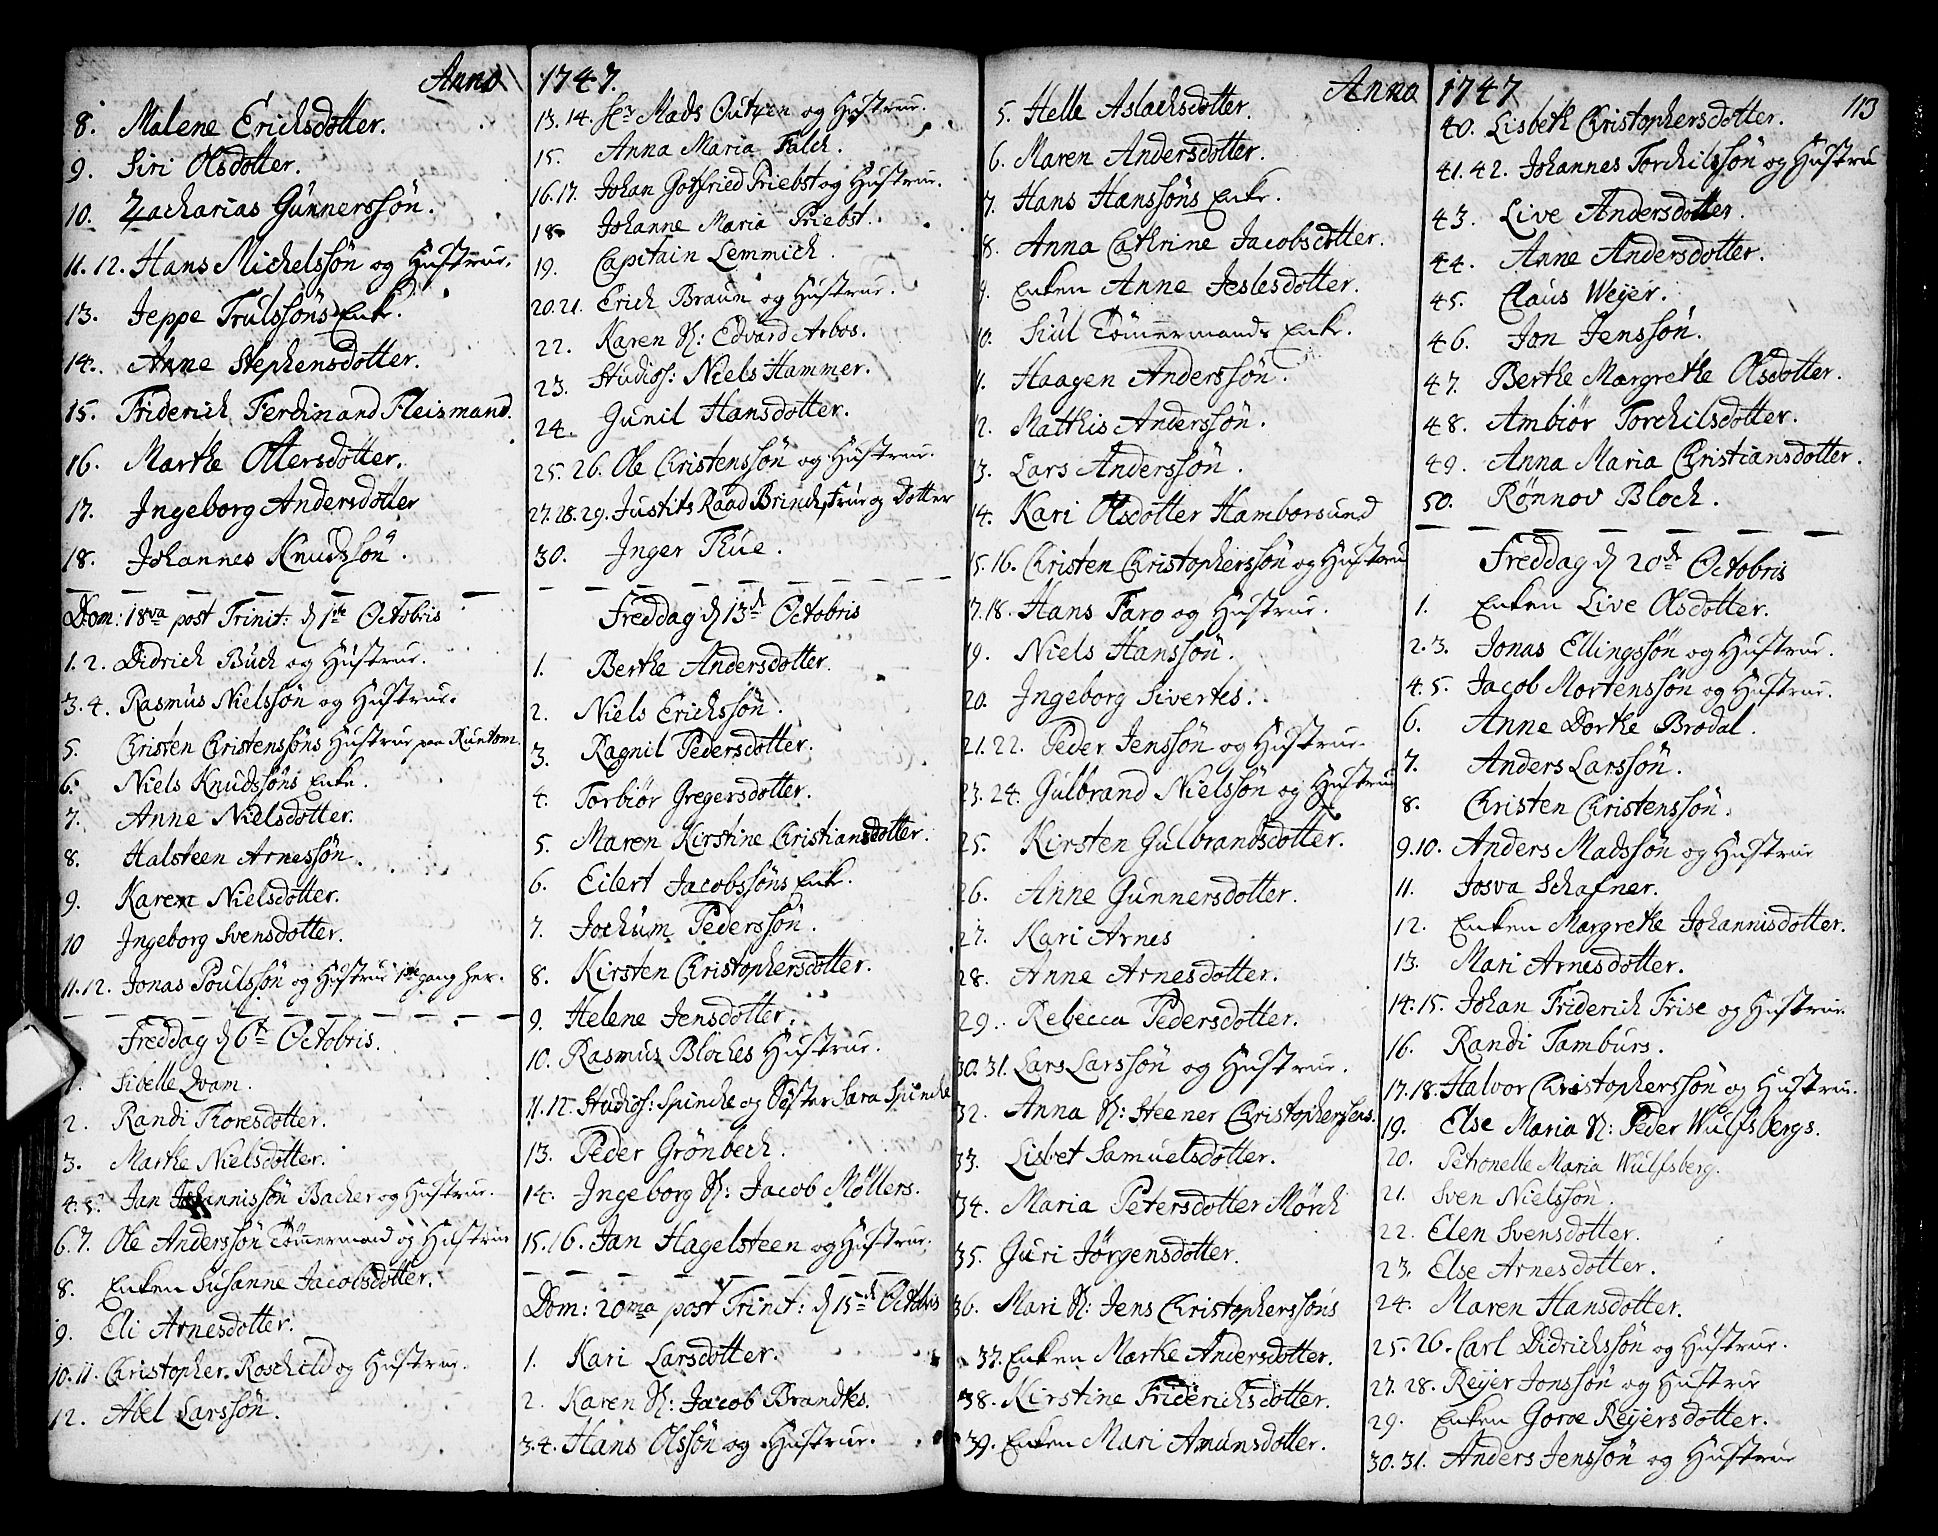 Anno 1747.
8. Malene Erichsdotter.
9. Siri Olsdotter.
10. Zacharias Gunnerssøn.
11. 12. Hans Michelssøn og Hustrue.
13. Jeppe Trulssøns Enke.
14. Anne Stephensdotter.
15. Friderich Ferdinand Fleismand.
16. Marthe Ottersdotter.
17. Ingeborg Andersdotter
18. Johannes Knudssøn.
Dom: 18va post Trinit: d 1ste Octobris
1. 2. Didrich Buch og Hustrue.
3. 4. Rasmus Nielssøn og Hustrue.
5. Christen Christenssøns Hustrue paa
6. Niels Knudssøns Enke.
7. Anne Nielsdotter.
8. Halsteen Arnessøn.
9. Karen Nielsdotter.
10 Ingeborg Svensdotter.
11. 12. Jonas Poulssøn og Hustrue 1ste gang her.
Freddag d 6te Octobris.
1. Sibelle Qvam.
2. Randi Thoresdotter.
3. Marthe Nielsdotter.
4. 5. Jan Johannissøn Bacher og Hustrue.
6. 7. Ole Anderssøn Tømmermand og Hustrue
8. Enken Susanne Jacobsdotter.
9. Eli Arnesdotter.
10. 11. Christopher Roschild og Hustrue.
12. Abel Larssøn.
13. 14. Sr Mads Outzen og Hustrue.
15. Anna Maria Falch.
16. 17. Johan Gotfried Priebst og Hustrue.
18. Johanne Maria Priebst.
19. Capitain Lemmich.
20. 21. Erich Braun og Hustrue.
22. Karen S: Edvard Arbos.
23. Studios: Niels Hammer.
24. Gunil Hansdotter.
25. 26. Ole Christenssøn og Hustrue.
27. 28. 29. Justits Raad Brinch, Frue og Dotter
30. Inger Thue.
Freddag d 13de Octobris
1. Berthe Andersdotter.
2. Niels Erichssøn.
3. Ragnil Pedersdotter.
4. Torbiør Gregersdotter.
5. Maren Kirstine Christiansdotter.
6. Eilert Jacobssøns Enke.
7. Jochum Pederssøn.
8. Kirsten Christophersdotter.
9. Helene Jensdotter.
10. Rasmus Bloches Hustrue.
11. 12. Studios: Spincke og Søster Sara Spincke
13. Peder Grønbech.
14. Ingeborg S: Jacob Møllers.
15. 16. Jan Hagelsteen og Hustrue.
Dom: 20ma post Trinit: d 15de Octobris
1. Kari Larsdotter.
2. Karen S: Jacob Brandtes.
3. 4. Hans Olssøn og Hustrue.
Anno 1747
113
5. Helle Aslachsdotter.
6. Maren Andersdotter.
7. Hans Hanssøns Enke.
8. Anna Cathrine Jacobsdotter.
9. Enken Anne Jeslesdotter.
10. Siul Tømmermands Enke.
11. Haagen Anderssøn.
12. Mathis Anderssøn.
13. Lars Anderssøn.
14. Kari Olsdotter Hamborsund
15. 16. Christen Christopherssøn og Hustrue
17. 18. Hans Faro og Hustrue.
19. Niels Hanssøn.
20. Ingeborg Sivertes.
21. 22. Peder Jenssøn og Hustrue.
23. 24. Gulbrand Nielssøn og Hustrue
25. Kirsten Gulbrandsdotter.
26. Anne Gunnersdotter.
27. Kari Arnes
28. Anne Arnesdotter.
29. Rebecca Pedersdotter.
30. 31. Lars Larssøn og Hustrue.
32. Anna S: Steener Christopherssøns.
33. Lisbet Samuelsdotter.
34. Maria Petersdotter Mørch
35. Guri Jørgensdotter.
36. Mari S: Jens Christopherssøns
37. Enken Marthe Andersdotter.
38. Kirstine Friderichsdotter.
39. Enken Mari Amunsdotter.
40. Lisbeth Christophersdotter.
41. 42. Johannes Torchilssøn og Hustrue
43. Live Andersdotter.
44. Anne Andersdotter.
45. Claus Weyer.
46. Jon Jenssøn.
47. Berthe Margrethe Olsdotter.
48. Ambiør Torchilsdotter.
49. Anna Maria Christiansdotter.
50. Rønnov Bloch.
Freddag d 20de Octobris
1. Enken Live Olsdotter.
2. 3. Jonas Ellingssøn og Hustrue.
4. 5. Jacob Mortenssøn og Hustrue.
6. Anne Dorthe Brodal.
7. Anders Larssøn.
8. Christen Christenssøn.
9. 10. Anders Madssøn og Hustrue
11. Josva Schafner.
12. Enken Margrethe Johannisdotter.
13. Mari Arnesdotter.
14. 15. Johan Friderich Frise og Hustrue.
16. Randi Tamburs.
17. 18. Halvor Christopherssøn og Hustrue.
19. Else Maria S: Peder Wulfsbergs.
20. Petronelle Maria Wulfsberg.
21. Sven Nielssøn.
22. Elen Svensdotter.
23. Else Arnesdotter.
24. Maren Hansdotter.
25. 26. Carl Didrichssøn og Hustrue.
27. 28. Reyer Jonssøn og Hustrue
29. Enken Goroe Reyersdotter.
30. 31. Anders Jenssøn og Hustrue